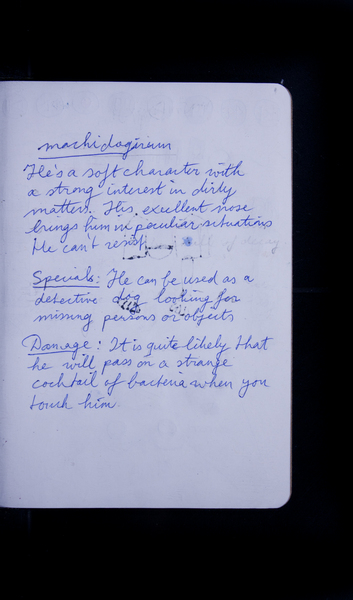 machidogirium
He's a soft character with
a strong interest in dirty
matters. His exellent nose
brings him in peculiar situations
He can't resist
Specials: He can be used as a
detective dog looking for
missing persons or objects
Damage: It is quite likely that
he will pass on a strange
cocktail of bacteria when you
touch him.